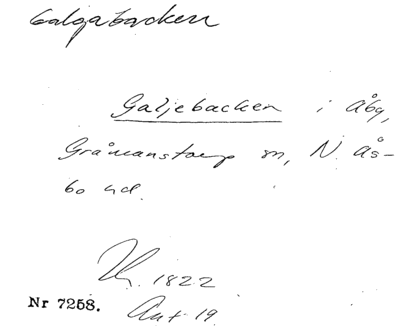 Galgabacken
Galjebacken i Åby,
Gråmanstorp sn, N. Ås-
bo hd.
1822
Nr 7258. Ant 19